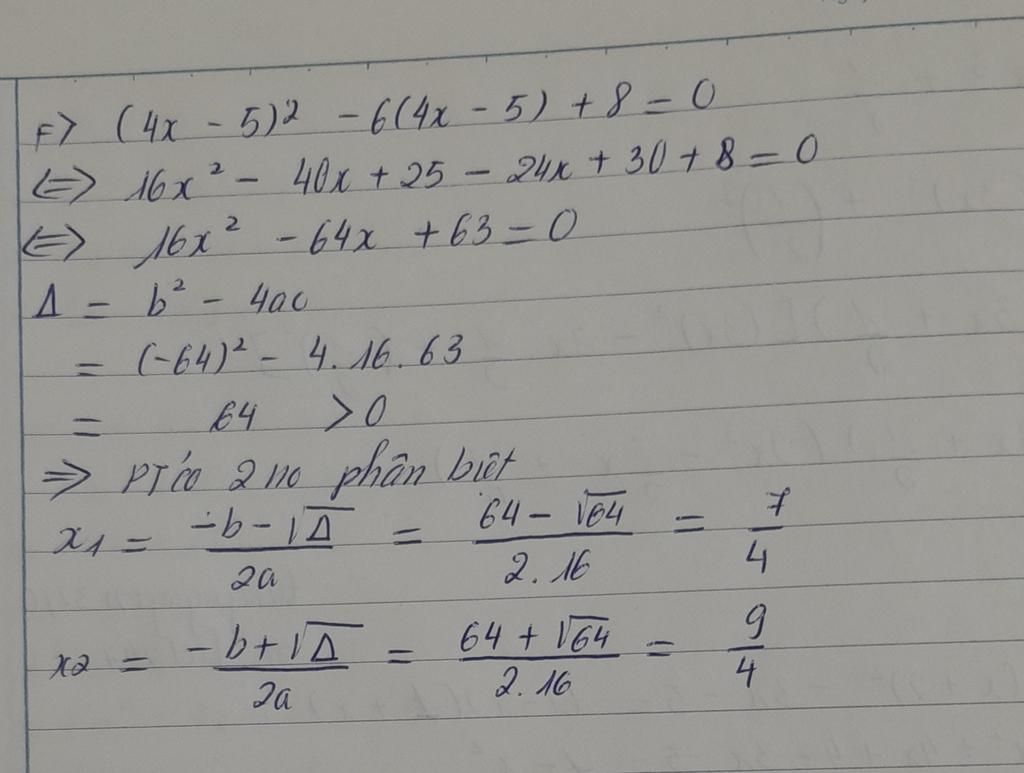 F> (4x - 5)² - 6(4x - 5) + 8 = 0
<=> 16x² - 40x + 25 - 24x + 30 + 8 = 0
<=> 16x² - 64x + 63 = 0
Δ = b² - 4ac
= (-64)² - 4.16.63
= 64 > 0
=> PT có 2 no phân biệt
x₁ = (-b - √Δ)/(2a) = (64 - √64)/(2.16) = 7/4
x₂ = (-b + √Δ)/(2a) = (64 + √64)/(2.16) = 9/4